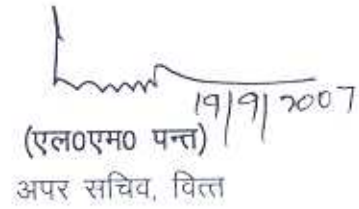 19/9/2007
(एल0एम0 पन्त)
अपर सचिव, वित्त